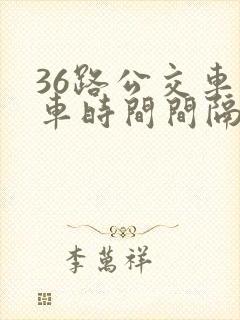 36路公交車
車時間間隔
李萬祥